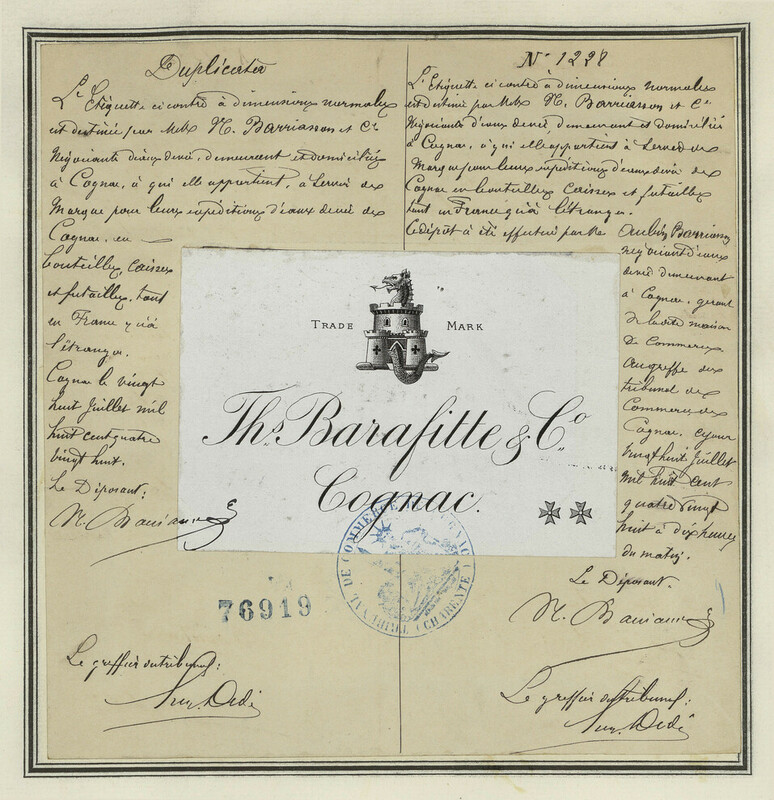 Duplicata
L'Etiquette ci contre à dimensions normales
est destinée par MMrs N. Barriasson et Cie
Négociants d'eaux de vie, demeurant et domiciliés
à Cognac, à qui elle appartient, à servir de
Marque pour leurs expéditions d'eaux de vie de
Cognac, en
bouteilles, caisses
et futailles, tant
en France qu'à
l'étranger.
Cognac le vingt
huit Juillet mil
huit cent quatre
vingt huit.
Le Déposant:
N. Barriasson
Le greffier du tribunal:
No 1228
L'Etiquette ci contre à dimensions normales
est destinée par MMrs N. Barriasson et Cie
Négociants d'eaux de vie demeurant et domiciliés
à Cognac, à qui elle appartient à servir de
Marque pour leurs expéditions d'eaux de vie de
Cognac en bouteilles caisses et futailles
tant en France qu'à l'étranger.
Le dépôt a été effectué par Mr Aubin Barriasson
négociant d'eaux
de vie demeurant
à Cognac, gérant
de la dite maison
de Commerce
au greffe du
tribunal de
Commerce de
Cognac, ce jour
vingt huit Juillet
mil huit cent
quatre vingt
huit à dix heures
du matin.
Le Déposant.
N. Barriasson
Le greffier du tribunal:
TRADE MARK
Ths. Barafitte & Co.
Cognac.
TRIBUNAL DE COMMERCE DE COGNAC (CHARENTE)
76919